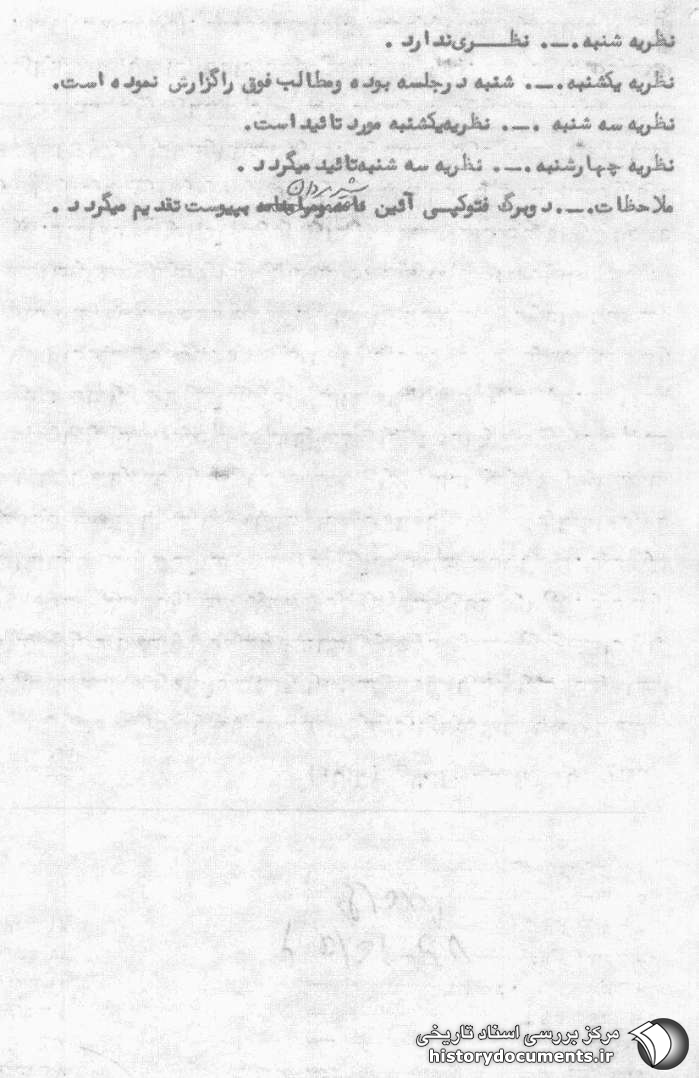 نظریه شنبه .ــ. نظـــری‌ندارد .
نظریه یکشنبه.ــ. شنبه درجلسه بوده ومطالب فوق راگزارش نموده است.
نظریه سه شنبه .ــ. نظریه‌یکشنبه مورد تائید است.
نظریه چهارشنبه.ــ. نظریه سه شنبه‌تائید میگردد .
ملاحظات.ــ.دوبرگ فتوکپی آئین نامه بپیوست تقدیم میگردد .
مرکز بررسی اسناد تاریخی
historydocuments.ir